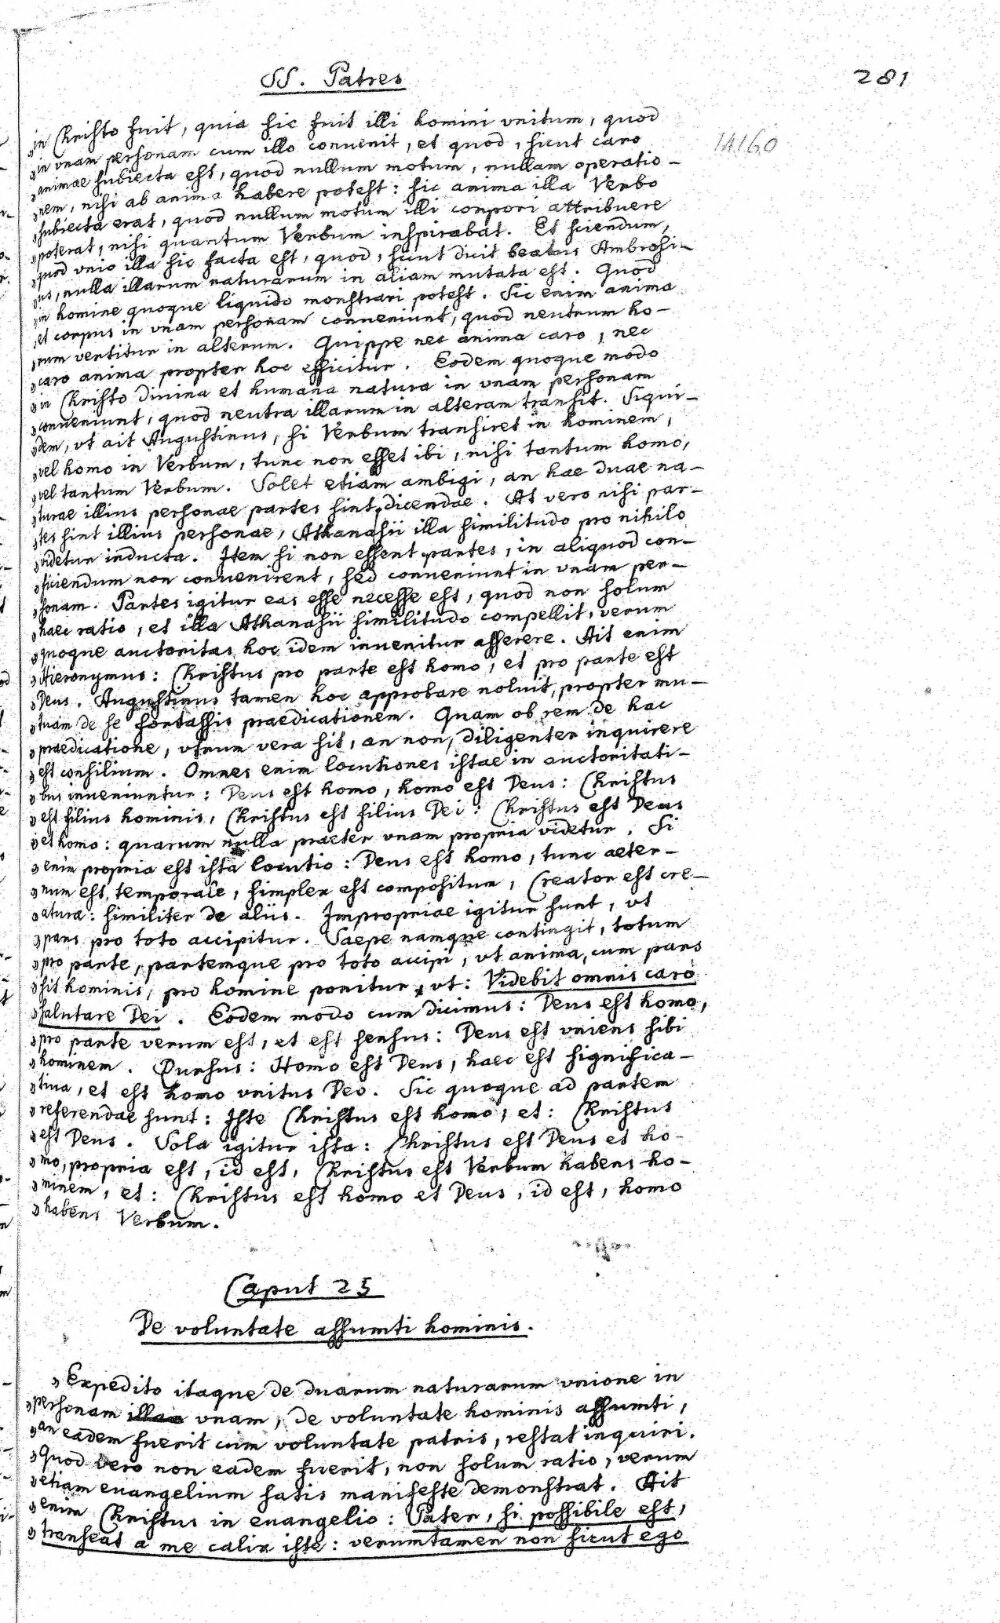 SS. Patres
281
14160
» in Christo fuit, quia sic fuit illi homini unitum, quod
» in vnam personam cum illo conuenit, et quod, sicut caro
» animae subiecta est, quod nullum motum, nullam operatio-
» nem, nisi ab anima habere potest: sic anima illa Verbo
» subiecta erat, quod nullum motum illi corpori attribuere
» poterat, nisi quantum Verbum inspirabat. Et sciendum,
» quod vnio illa sic facta est, quod, sicut dicit beatus Ambrosi-
» us, nulla illarum naturarum in aliam mutata est. Quod
» in homine quoque liquido monstrari potest. Sic enim anima
» et corpus in vnam personam conueniunt, quod neutrum ho-
» rum vertitur in alterum. Quippe nec anima caro, nec
» caro anima propter hoc efficitur. Eodem quoque modo
» in Christo diuina et humana natura in vnam personam
» conueniunt, quod neutra illarum in alteram transit. Siqui-
» dem, vt ait Augustinus, si Verbum transiret in hominem,
» vel homo in Verbum, tunc non esset ibi, nisi tantum homo,
» vel tantum Verbum. Solet etiam ambigi, an hae duae na-
» turae illius personae partes sint dicendae. At vero nisi par-
» tes sint illius personae, Athanasii illa similitudo pro nihilo
» videtur inducta. Item si non essent partes, in aliquod con-
» ficiendum non conuenirent, sed conueniunt in vnam per-
» sonam. Partes igitur eas esse necesse est, quod non solum
» haec ratio, et illa Athanasii similitudo compellit, verum
» quoque auctoritas hoc idem inuenitur asserere. Ait enim
» Hieronymus: Christus pro parte est homo, et pro parte est
» Deus. Augustinus tamen hoc approbare noluit, propter mu-
» tuam de se fortassis praedicationem. Quam ob rem de hac
» praedicatione, vtrum vera sit, an non, diligenter inquirere
» est consilium. Omnes enim locutiones istae in auctoritati-
» bus inueniuntur: Deus est homo, homo est Deus: Christus
» est filius hominis, Christus est filius Dei: Christus est Deus
» et homo: quarum nulla praeter vnam propria videtur. Si
» enim propria est ista locutio: Deus est homo, tunc aeter-
» num est temporale, simplex est compositum, Creator est cre-
» atura: similiter de aliis. Impropriae igitur sunt, vt
» pars pro toto accipitur. Saepe namque contingit, totum
» pro parte, partemque pro toto accipi, vt anima, cum pars
» sit hominis, pro homine ponitur, vt: Videbit omnis caro
» salutare Dei. Eodem modo cum dicimus: Deus est homo,
» pro parte verum est, et est sensus: Deus est vniens sibi
» hominem. Rursus: Homo est Deus, haec est significa-
» tiua, et est homo vnitus Deo. Sic quoque ad partem
» referendae sunt: Iste Christus est homo, et: Christus
» est Deus. Sola igitur ista: Christus est Deus et ho-
» mo, propria est, id est, Christus est Verbum habens ho-
» minem, et: Christus est homo et Deus, id est, homo
» habens Verbum.
Caput 25
De voluntate assumti hominis.
» Expedito itaque de duarum naturarum vnione in
» personam vnam, de voluntate hominis assumti,
» an eadem fuerit cum voluntate patris, restat inquiri.
» Quod vero non eadem fuerit, non solum ratio, verum
» etiam euangelium satis manifeste demonstrat. Ait
» enim Christus in euangelio: Pater, si possibile est,
» transeat a me calix iste: verumtamen non sicut ego